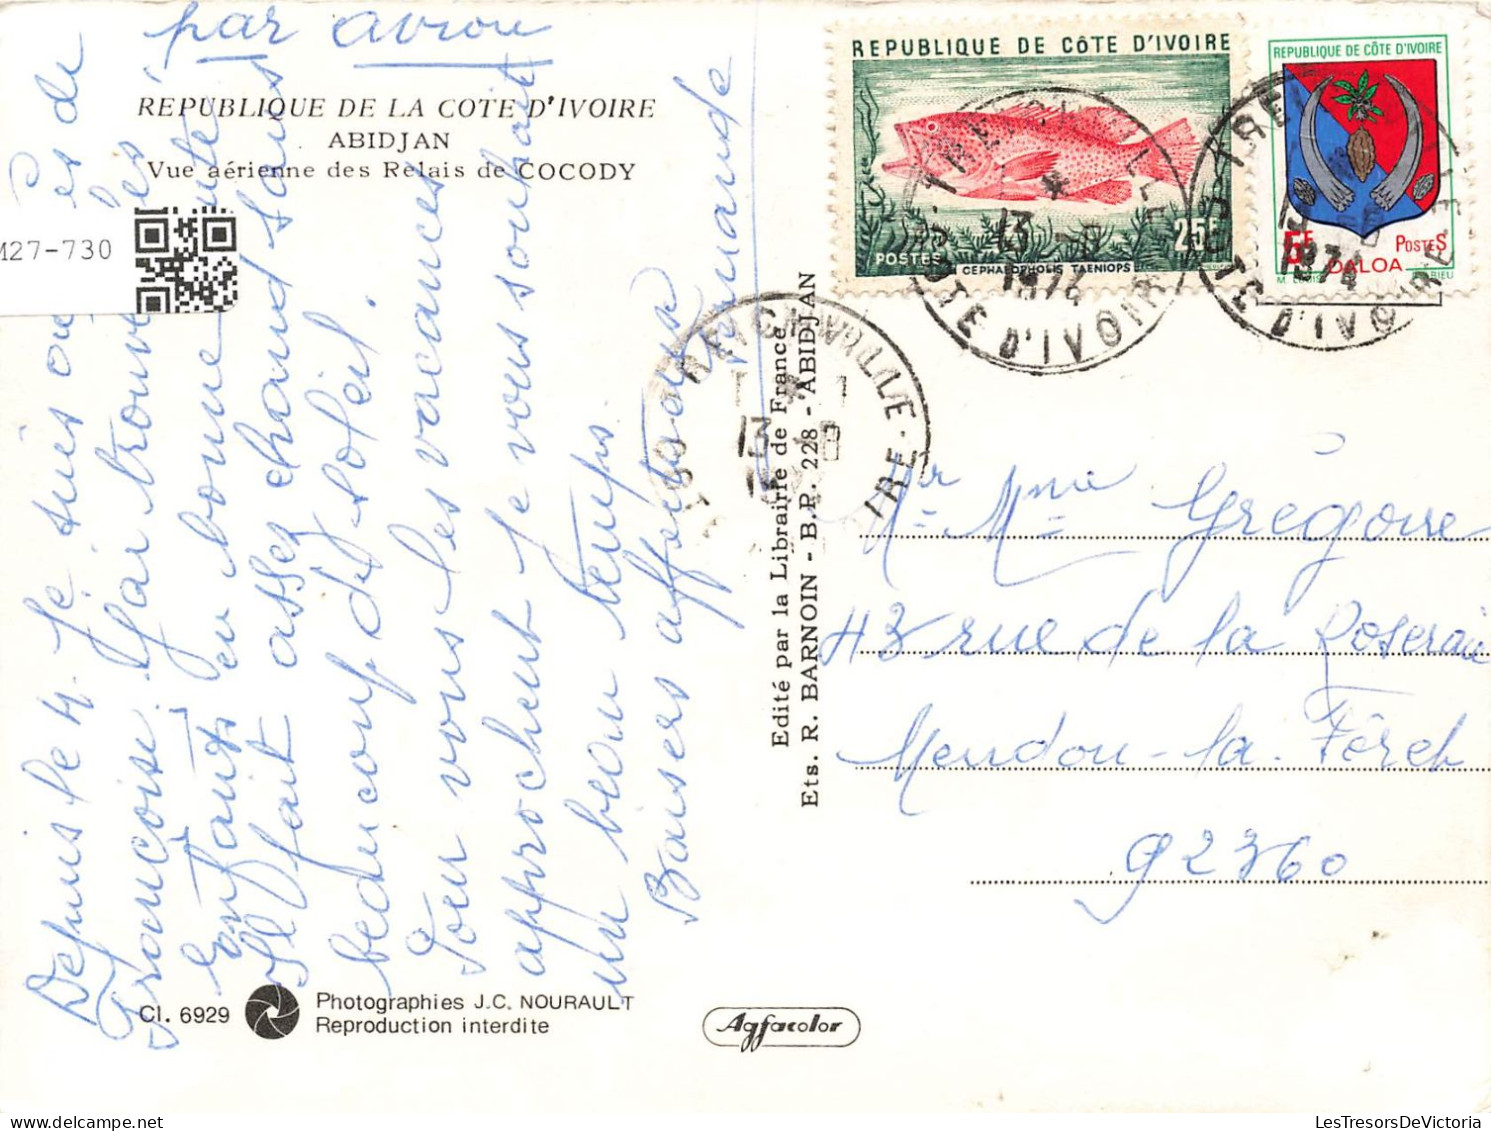 par avion
REPUBLIQUE DE LA COTE D'IVOIRE
ABIDJAN
Vue aérienne des Relais de COCODY
M27-730
Depuis le 4. Je suis chez de
Françoise. J'ai trouvé les
enfants en bonne santé
Il fait assez chaud sans
beaucoup de soleil.
Pour vous les vacances
approchent Je vous souhaite
un beau temps.
Baisers affectueux
Fernande
Cl. 6929
Photographies J.C. NOURAULT
Reproduction interdite
Agfacolor
Edité par la Librairie de France
Ets. R. BARNOIN - B.P. 228 - ABIDJAN
REPUBLIQUE DE CÔTE D'IVOIRE
25F
POSTES
CEPHALOPHOLIS TAENIOPS
REPUBLIQUE DE CÔTE D'IVOIRE
5F
POSTES
DALOA
TREICHVILLE
13
1974
CÔTE D'IVOIRE
Mr Mme Grégoire
43 rue de la Roseraie
Meudon-la-Forêt
92360
LesTresorsDeVictoria.com